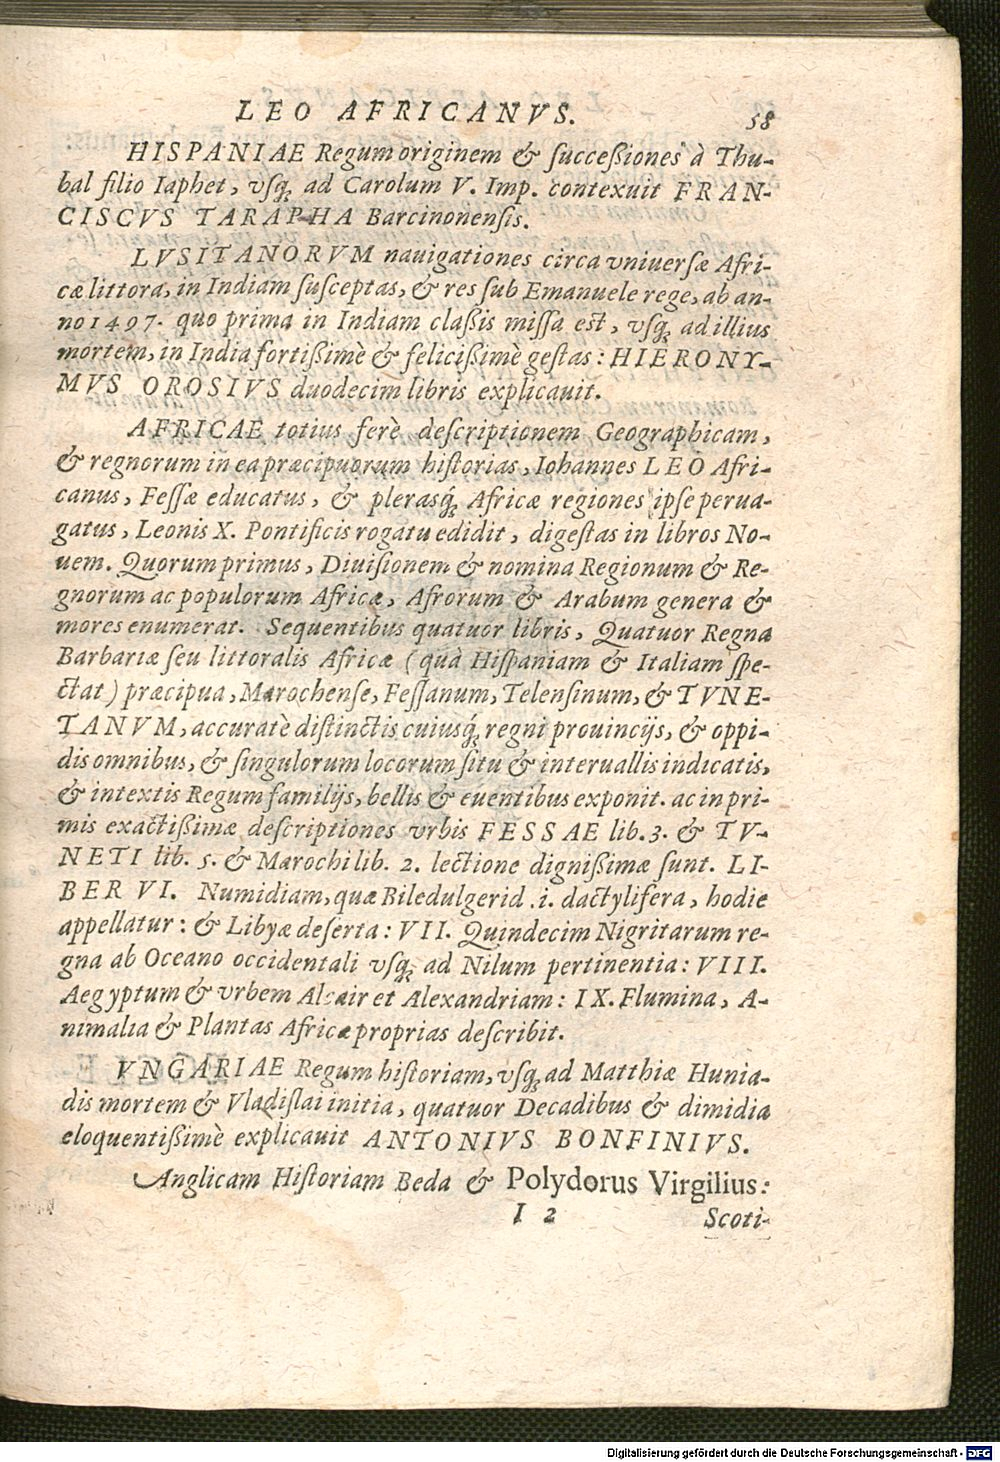 LEO AFRICANVS. 58
HISPANIAE Regum originem & succeßiones à Thu-
bal filio Iaphet, vsq́; ad Carolum V. Imp. contexuit FRAN-
CISCVS TARAPHA Barcinonensis.
LVSITANORVM nauigationes circa vniuersæ Afri-
cæ littora, in Indiam susceptas, & res sub Emanuele rege, ab an-
no 1497. quo prima in Indiam claßis missa est, vsq́; ad illius
mortem, in India fortißimè & felicißimè gestas: HIERONY-
MVS OROSIVS duodecim libris explicauit.
AFRICAE totius ferè descriptionem Geographicam,
& regnorum in ea præcipuorum historias, Iohannes LEO Afri-
canus, Fessæ educatus, & plerasq́; Africæ regiones ipse perua-
gatus, Leonis X. Pontificis rogatu edidit, digestas in libros No-
uem. Quorum primus, Diuisionem & nomina Regionum & Re-
gnorum ac populorum Africæ, Afrorum & Arabum genera &
mores enumerat. Sequentibus quatuor libris, Quatuor Regna
Barbariæ seu littoralis Africæ (quà Hispaniam & Italiam spe-
ctat) præcipua, Marochense, Fessanum, Telensinum, & TVNE-
TANVM, accuratè distinctis cuiusq́; regni prouincijs, & oppi-
dis omnibus, & singulorum locorum situ & interuallis indicatis,
& intextis Regum familijs, bellis & euentibus exponit. ac in pri-
mis exactißimæ descriptiones vrbis FESSAE lib. 3. & TV-
NETI lib. 5. & Marochi lib. 2. lectione dignißimæ sunt. LI-
BER VI. Numidiam, quæ Biledulgerid .i. dactylifera, hodie
appellatur: & Libyæ deserta: VII. Quindecim Nigritarum re-
gna ab Oceano occidentali vsq́; ad Nilum pertinentia: VIII.
Aegyptum & vrbem Alcair et Alexandriam: IX. Flumina, A-
nimalia & Plantas Africæ proprias describit.
VNGARIAE Regum historiam, vsq́; ad Matthiæ Hunia-
dis mortem & Vladislai initia, quatuor Decadibus & dimidia
eloquentißimè explicauit ANTONIVS BONFINIVS.
Anglicam Historiam Beda & Polydorus Virgilius:
I 2 Scoti-
Digitalisierung gefördert durch die Deutsche Forschungsgemeinschaft - DFG